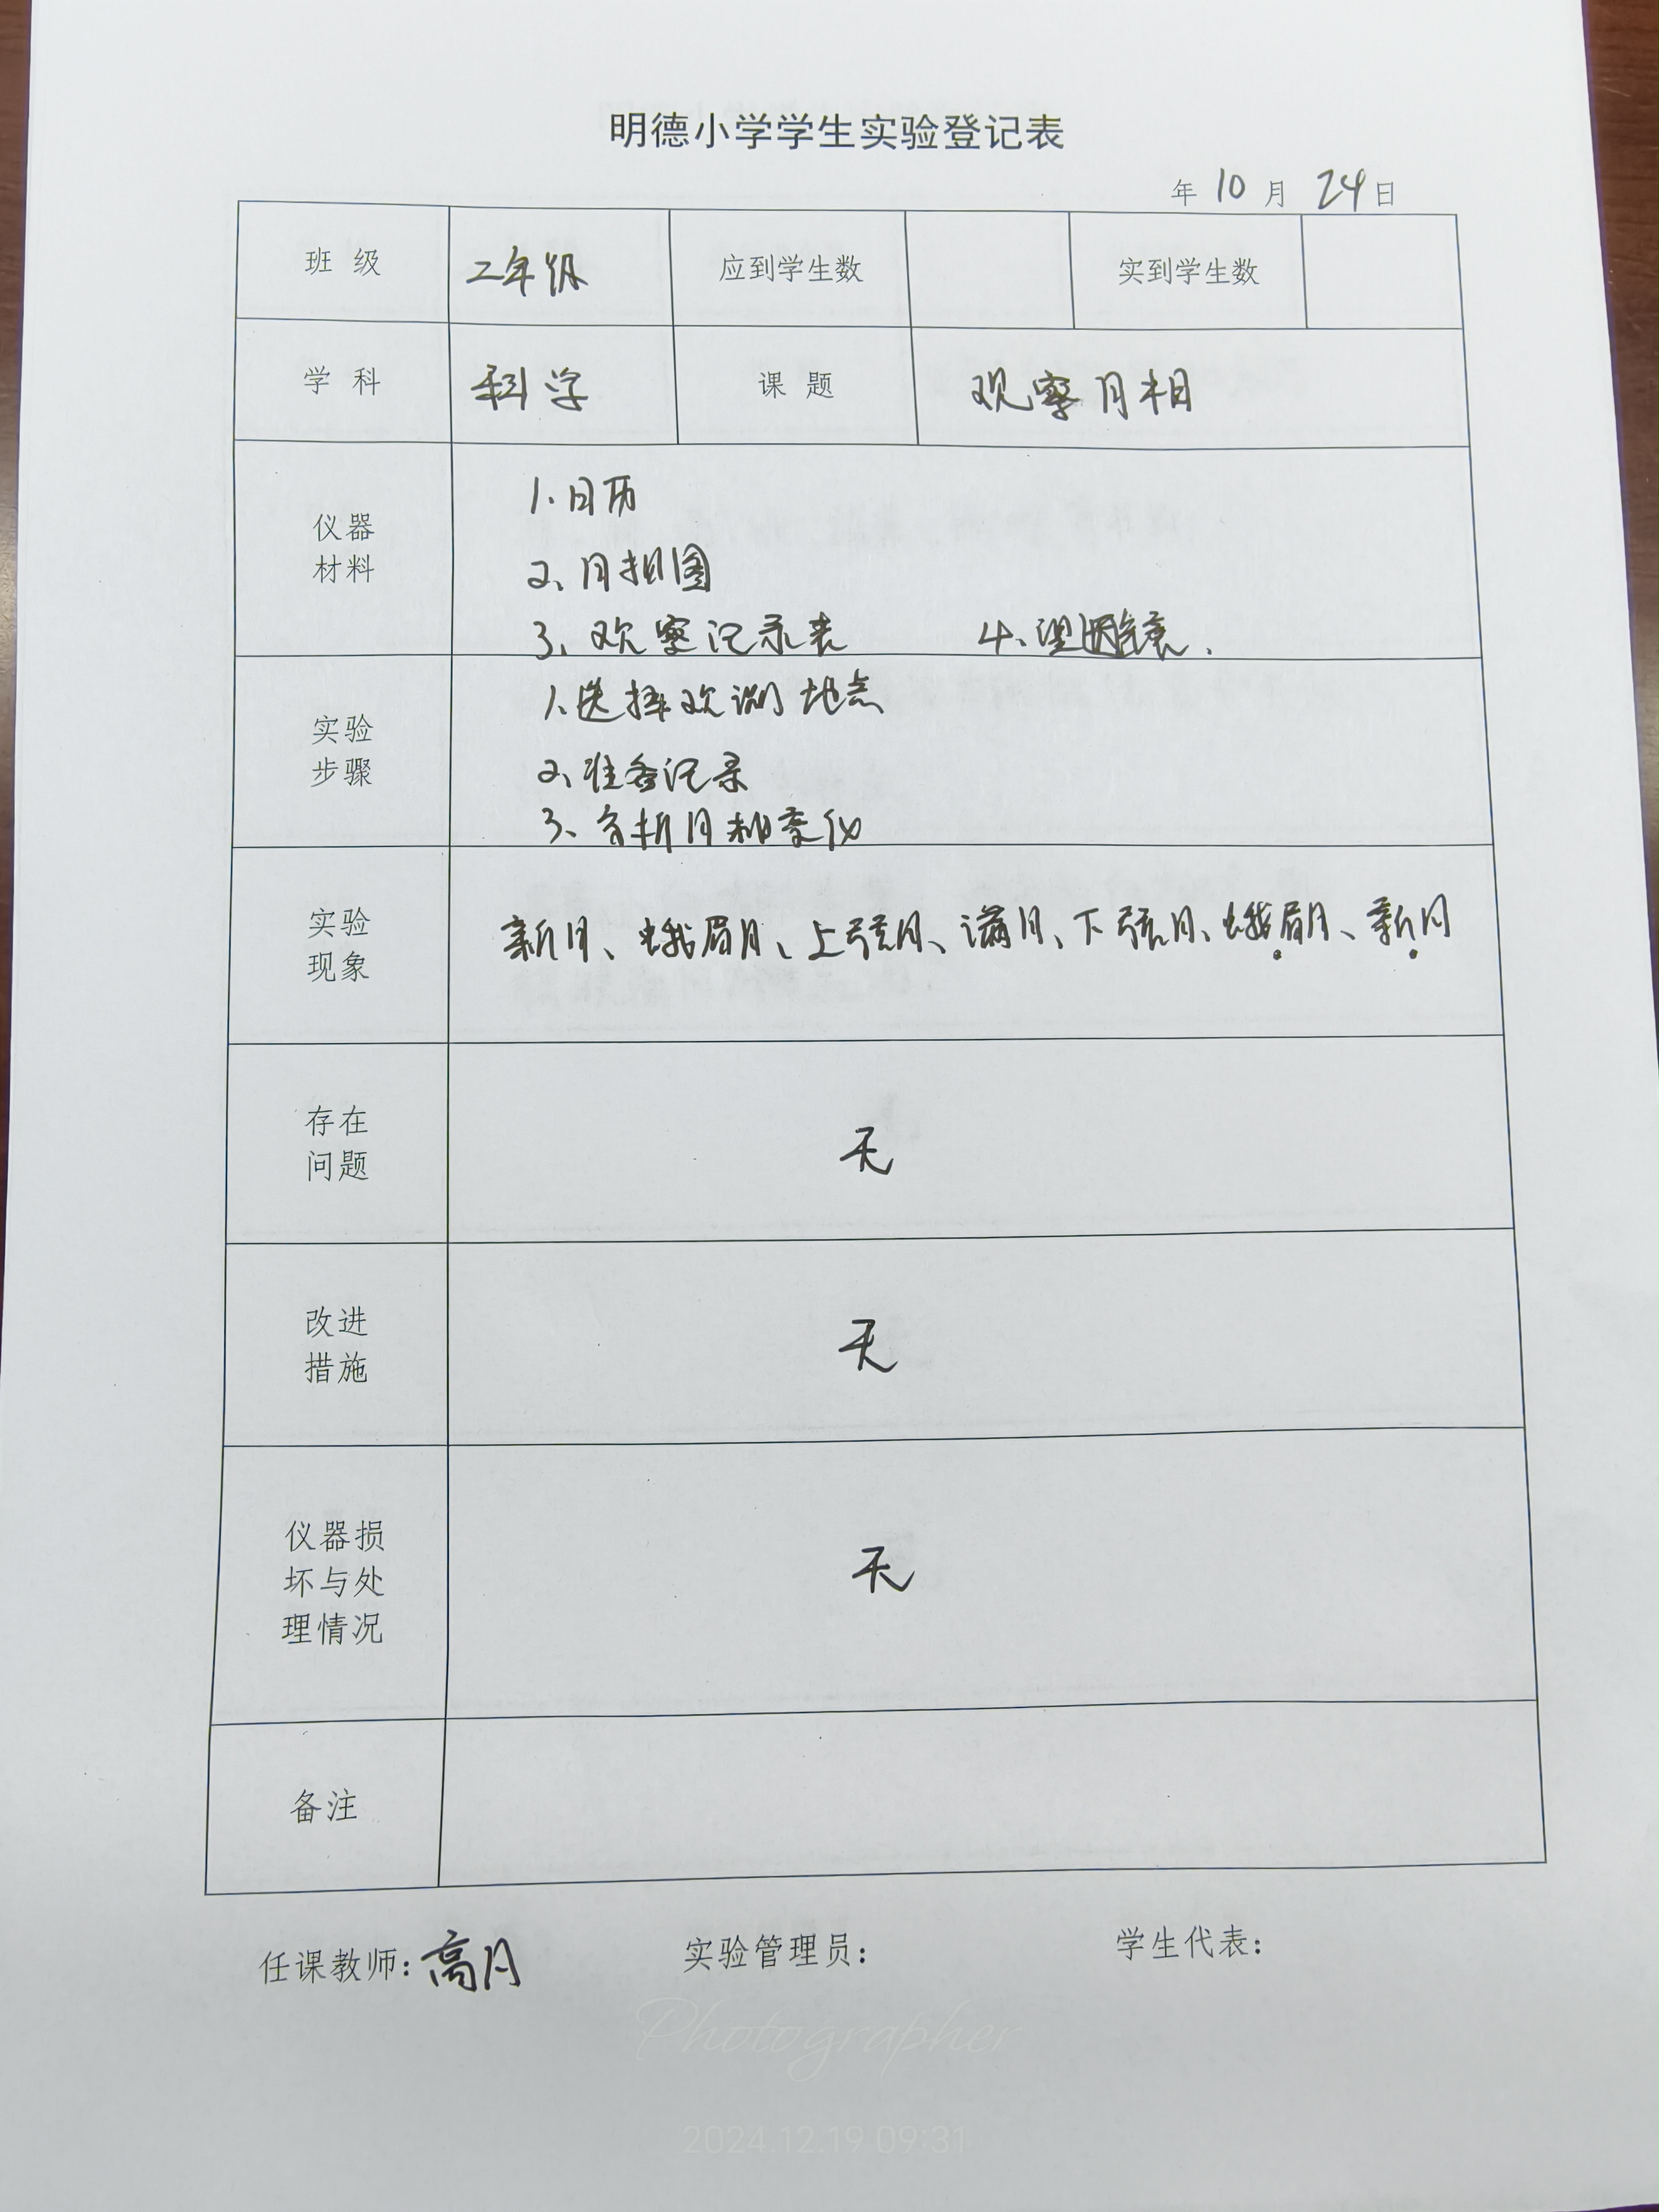 明德小学学生实验登记表
年 10 月 24 日
班 级 二年级 应到学生数 实到学生数
学 科 科学 课 题 观察月相
仪器
材料
1.日历
2、月相图
3、观察记录表 4、望远镜
实验
步骤
1.选择观测地点
2、准备记录
3、分析月相变化
实验
现象
新月、蛾眉月、上弦月、满月、下弦月、蛾眉月、新月
存在
问题
无
改进
措施
无
仪器损
坏与处
理情况
无
备注
任课教师：高月 实验管理员： 学生代表：
Photographer
2024.12.19 09:31